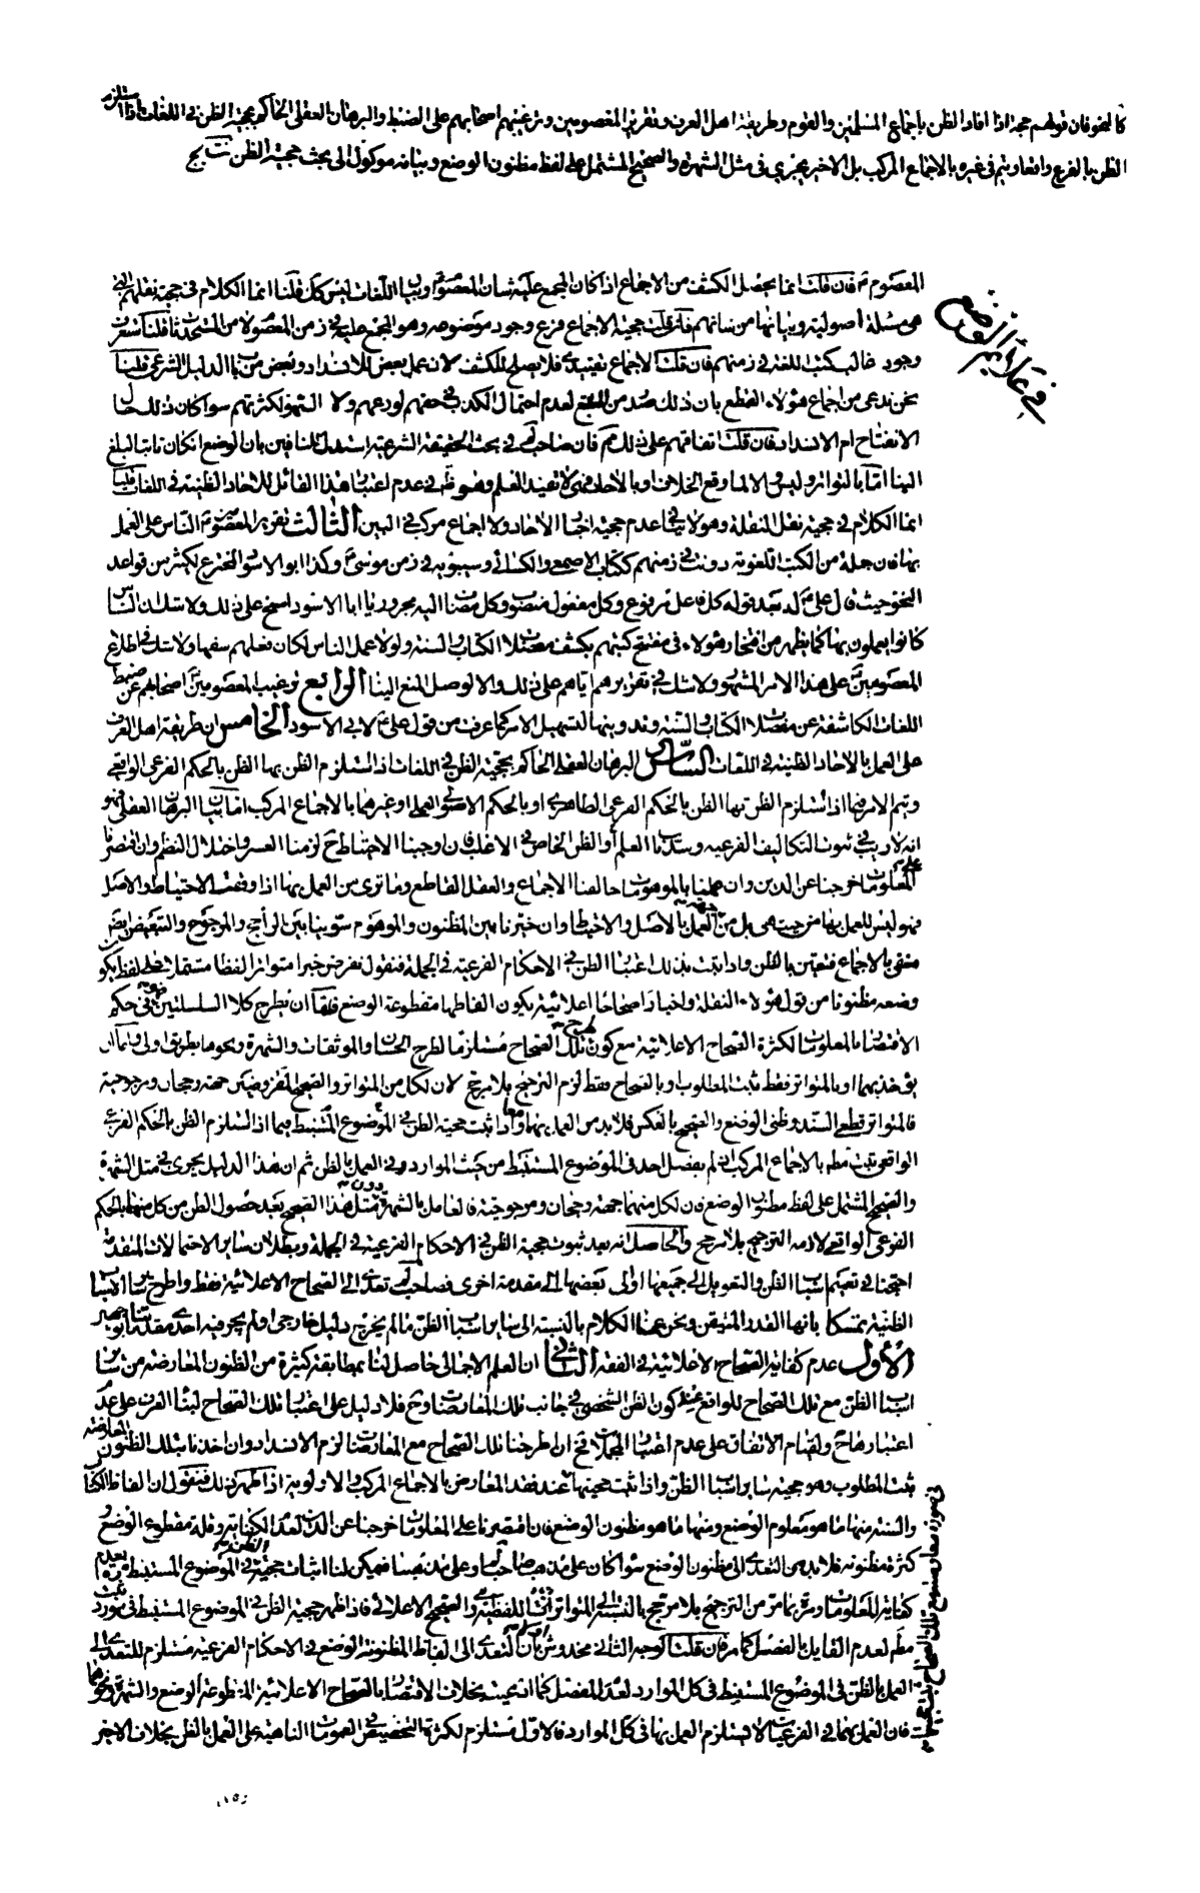 كالنحو فان قولهم حجة اذا افاد الظن باجماع المسلمين والقوم وطريقة اهل العرف وتقرير المعصومين وترغيبهم اصحابهم على الضبط والبرهان العقلى الحاكم بحجية الظن فى اللغات اذا استلزم
الظن بالفرع واقعا ويتم فى غيره بالاجماع المركب بل الاخير يجرى فى مثل الشهرة والصحيح المشتمل على لفظ مظنون الوضع وبيانه موكول الى بحث حجية الظن
فى علايم الوضع
المعصوم فان قلت انما يحصل الكشف من الاجماع اذا كان المجمع عليه شان المعصوم وبيان اللغات ليس كك قلنا انما الكلام فى حجية نقلهم التى
هى مسئلة اصولية وبيانها من شانهم فان قلت حجية الاجماع فرع وجود موضوعه وهو المجمع عليه فى زمن المعصوم لا من المستحدثات قلنا
وجود غالب كتب اللغة فى زمنهم فان قلت الاجماع تقييدى فلا يصلح للكشف لان عمل بعض للانسداد وبعض من باب الدليل الشرعى قلنا
نحن ندعى من اجماع هؤلاء القطع بان ذلك صدر من المتبع لعدم احتمال الكذب فى حقهم لورعهم ولا السهو لكثرتهم سواء كان ذلك حال
الانفتاح ام الانسداد فان قلت اتفاقهم على ذلك مم فان صاحب لم فى بحث الحقيقة الشرعية استدل للنافين بان الوضع ان كان ثابتا لبلغ
الينا اما بالتواتر وليس والا لما وقع الخلاف او بالاحاد فهى لا تفيد العلم وهو فى عدم اعتبار هذا القائل للاحاد الظنية فى اللغات قلنا
انما الكلام فى حجية نقل النقلة وهو لا ينافى عدم حجية اخبار الاحاد ولا اجماع مركب فى البين الثالث تقرير المعصوم الناس على العمل
بها فان جملة من الكتب اللغوية دونت فى زمنهم ككتاب الاصمعى والكسائى وسيبويه فى زمن موسى وكذا ابو الاسود المخترع لكثير من قواعد
النحو حيث قال على له بعد قوله كل فاعل مرفوع وكل مفعول منصوب وكل مضاف اليه مجرور يا ابا الاسود اسمح على ذلك ولا شك ان الناس
كانوا يعملون بها كما يظهر من افتخار هؤلاء فى مفتتح كتبهم بكشف معضلات الكتاب والسنة ولولا عمل الناس لكان فعلهم سفها ولا شك فى اطلاع
المعصومين على هذا الامر المشهور ولا شك فى تقريرهم اياهم على ذلك والا لوصل المنع الينا الرابع ترغيب المعصومين اصحابهم عن ضبط
اللغات الكاشفة عن معضلات الكتاب والسنة وتدوينها لتسهيل الامر كما عرفت من قول على لابى الاسود الخامس ان طريقة اهل العرف
على العمل بالاحاد الظنية فى اللغات السادس البرهان العقلى الحاكم بحجية الظن فى اللغات اذا استلزم الظن بها الظن بالحكم الفرعى الواقعى
ويتم الامر فيما اذا استلزم الظن بها الظن بالحكم الفرعى الظاهرى او بالحكم الاصولى العملى او غيرهما بالاجماع المركب اما بيان البرهان العقلى فهو
انه لا ريب فى ثبوت التكاليف الفرعية وسد باب العلم او الظن الخاص فى الاغلب فان اوجبنا الاحتياط ح لزمنا العسر واختلال النظم وان اقتصرنا
على المعلومات خرجنا عن الدين وان عملنا بالموهومات خالفنا الاجماع والعقل القاطع وما ترى من العمل بها اذا وافقت الاحتياط والاصل
فهو ليس للعمل بها من حيث هى بل من جهة العمل بالاصل والاحتياط وان خيرنا بين المظنون والموهوم سوينا بين الراجح والمرجوح والتبعيض ايضا
منفى بالاجماع فتعين بالظن واذا ثبت بذلك اعتبار الظن فى الاحكام الفرعية فى الجملة فنقول نفرض خبرا متواترا لفظا مشتملا على لفظ يكون
وضعه مظنونا من قول هؤلاء النقلة واخبارا صحاحا اعلائية يكون الفاظها مقطوعة الوضع فاما ان نطرح كلا السلسلتين فهو فى حكم
الاقتصار بالمعلومات لكثرة الصحاح الاعلائية مع كون طرح تلك الصحاح مستلزما لطرح الحسان والموثقات والشهرة ونحوها بطريق اولى واما ان
يؤخذ بهما او بالمتواتر فقط ثبت المطلوب او بالصحاح فقط لزم الترجيح بلا مرجح لان لكل من المتواتر والصحيح المفروضين جهة رجحان ومرجوحية
فالمتواتر قطعى السند وظنى الوضع والصحيح بالعكس فلا بد من العمل بهما معا واذا ثبت حجية الظن فى الموضوع المستنبط فيما اذا استلزم الظن بالحكم الفرعى
الواقعى ثبت مطلقا بالاجماع المركب اذ لم يفصل احد فى الموضوع المستنبط من حيث الموارد وفى العمل بالظن ثم ان هذا الدليل يجرى فى مثل الشهرة
والصحيح المشتمل على لفظ مظنون الوضع فان لكل منهما جهة رجحان ومرجوحية فالعامل بالشهرة دون مثل هذا الصحيح بعد حصول الظن من كل منهما بالحكم
الفرعى الواقعى لازمه الترجيح بلا مرجح والحاصل انه بعد ثبوت حجية الظن فى الاحكام الفرعية فى الجملة وبطلان ساير الاحتمالات المتقدمة
احتجنا فى تعميم اسباب الظن والتعويل الى جميعها او الى بعضها الى مقدمة اخرى فصاحب لم تعدى الى الصحاح الاعلائية فقط واطرح ساير الاسباب
الظنية تمسكا بانها القدر المتيقن ونحن عممنا الكلام بالنسبة الى ساير اسباب الظن ما لم يخرج دليل خارجى ولم يجر فيه احدى مقدمتنا بوجهين
الاول عدم كفاية الصحاح الاعلائية فى الفقه الثانى ان العلم الاجمالى حاصل لنا بمطابقة كثيرة من الظنون المعارضة من ساير
اسباب الظن مع تلك الصحاح للواقع عند كون الظن الشخصى فى جانب تلك المعارضات وح فلا دليل على اعتبار تلك الصحاح لبناء العرف على عدم
اعتبارها ح ولقيام الاتفاق على عدم اعتبار المجملات ح ان اطرحنا تلك الصحاح مع المعارضات لزم الانسداد وان اخذنا بتلك الظنون المعارضة
ثبت المطلوب وهو حجية ساير اسباب الظن واذا ثبت حجيتها عند فقد المعارض بالاجماع المركب والاولوية اذا ظهر ذلك فنقول ان الفاظ الكتاب
والسنة منها ما هو معلوم الوضع ومنها ما هو مظنون الوضع فان اقتصرنا على المعلومات خرجنا عن الدين لعدم الكفاية وقلة مقطوع الوضع و
كثرة مظنونه فلا بد من التعدى الى مظنون الوضع سواء كان على مذهب صاحب لم او على مذهبنا فيمكن لنا اثبات حجية الظن فى الموضوع المستنبط بعدم
كفاية المعلومات ومرة بما مر من الترجيح بلا مرجح بالنسبة الى المتواترات اللفظية والصحيح الاعلائى فاذا ظهر حجية الظن فى الموضوع المستنبط فى مورد ثبت
مطلقا لعدم القايل بالفصل كما مر فان قلت الوجه الثانى مخدوش بان التعدى الى الفاظ المظنونة الوضع فى الاحكام الفرعية مستلزم للتعدى الى
العمل بالظن فى الموضوع المستنبط فى كل الموارد لعدم المفصل كما انه عيب بخلاف الاقتصار بالصحاح الاعلائية المقطوعة الوضع والشهرة ونحوها
فان العمل بهما فى الفرعيات لا يستلزم العمل بها فى كل الموارد فالاول مستلزم لكثرة التخصيص فى العمومات الناهية على العمل بالظن بخلاف الاخر